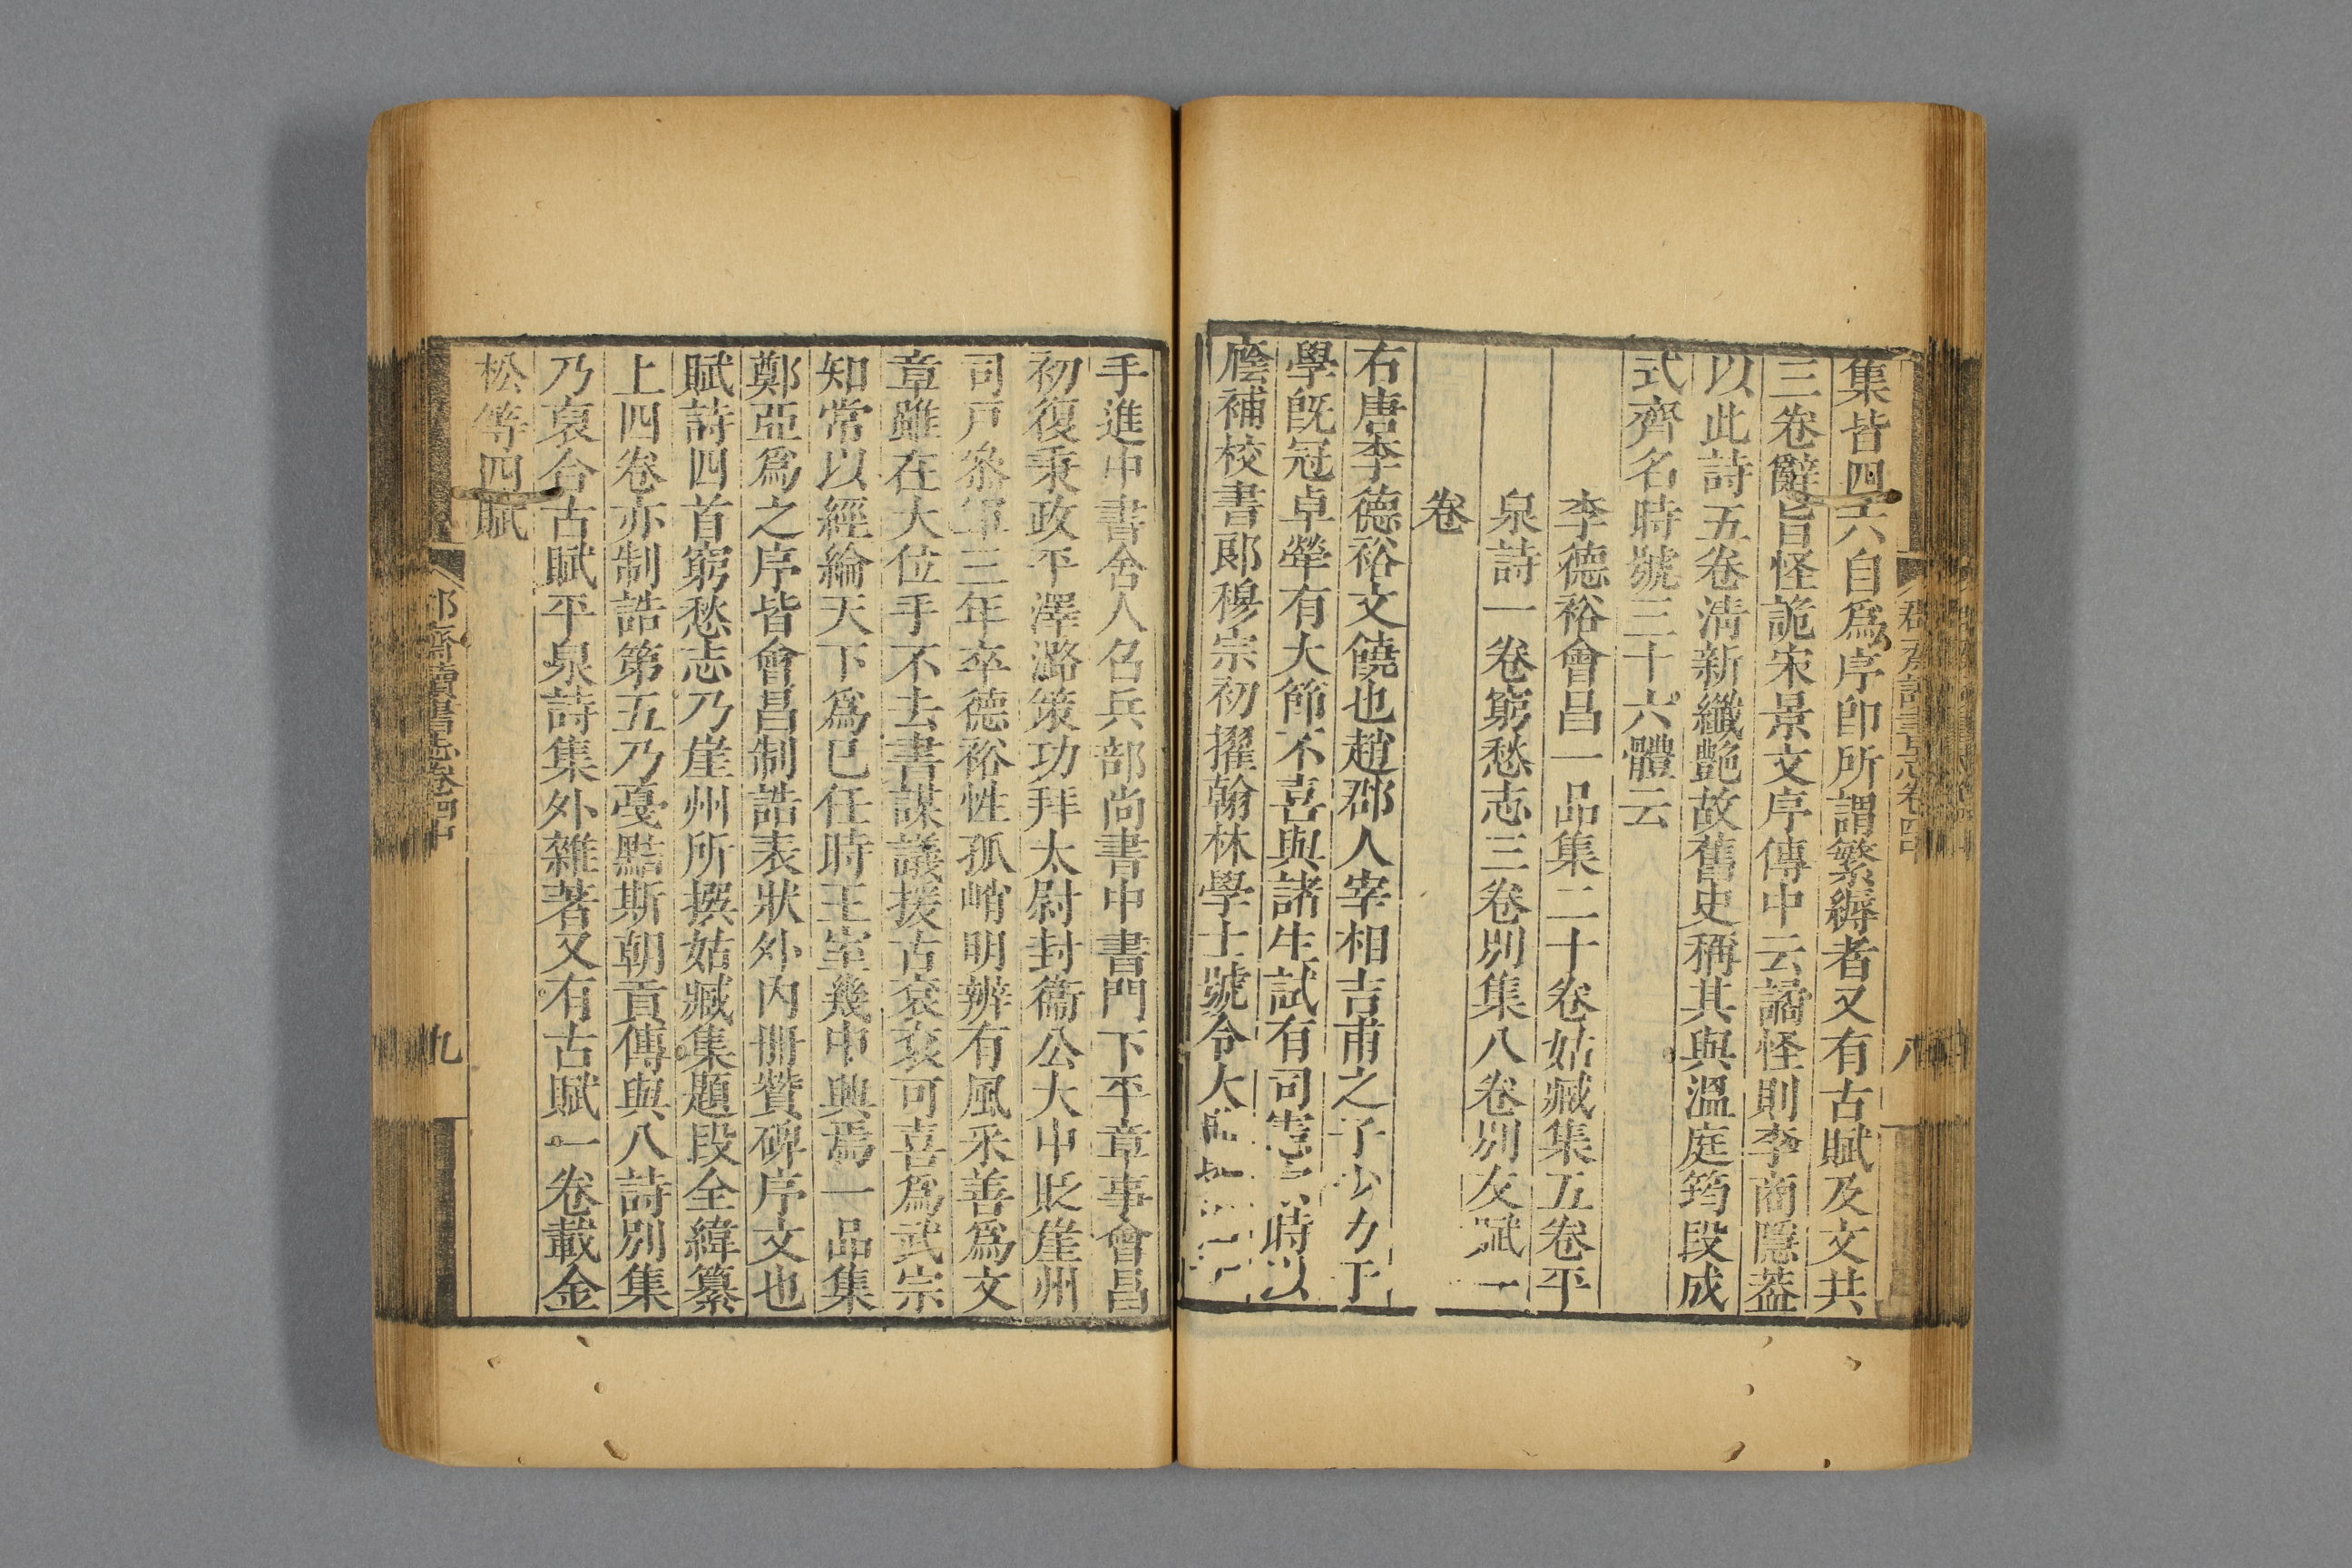 集皆四六自爲序卽所謂繁縟者又有古賦及文共
三卷辭旨怪詭宋景文序傳中云譎怪則李商隱葢
以此詩五卷淸新纖艶故舊史稱其與溫庭筠段成
式齊名時號三十六體云
李德裕會昌一品集二十卷姑臧集五卷平
泉詩一卷窮愁志三卷別集八卷別友賦一
卷
右唐李德裕文饒也趙郡人宰相吉甫之子少力于
學旣冠卓犖有大節不喜與諸生試有司憲時以
廕補校書郎穆宗初擢翰林學士號令大
手進中書舍人名兵部尚書中書門下平章事會昌
初復秉政平澤潞策功拜太尉封衞公大中貶崖州
司戸叅軍三年卒德裕性孤峭明辨有風采善爲文
章雖在大位手不去書謀議援古袞袞可喜爲武宗
知常以經綸天下爲已任時王室幾中興焉一品集
鄭亞爲之序皆會昌制誥表狀外內冊贊碑序文也
賦詩四首窮愁志乃崖州所撰姑臧集題段全緯纂
上四卷亦制誥第五乃戞黠斯朝貢傳與八詩別集
乃裒合古賦平泉詩集外雜著又有古賦一卷載金
松等四賦
郡齋讀書志卷四中
九
郡齋讀書志卷四中
八